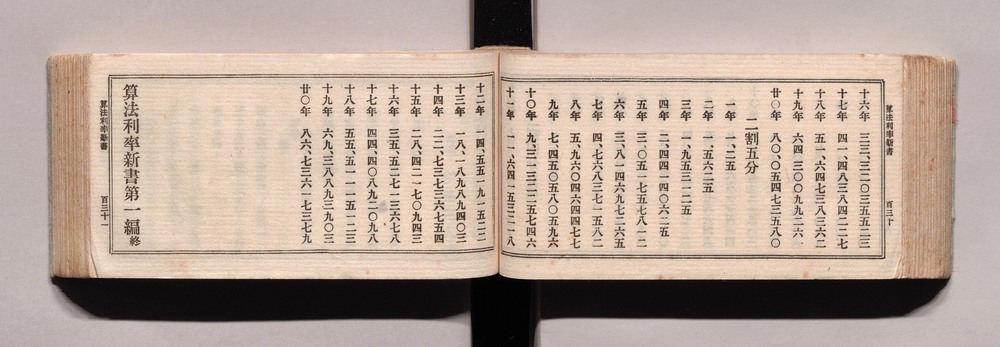 算法利率新書　百三十
十六年　三三、三二〇三五五二三
十七年　四一、四八三八四二二七
十八年　五一、六四七三八三六二
十九年　六四、三〇〇九九二六一
廿〇年　八〇、〇五四七三五八〇
二割五分
一年　一、二五
二年　一、五六二五
三年　一、九五三一二五
四年　二、四四一四〇六二五
五年　三、〇五一七五七八一二
六年　三、八一四六九七二六五
七年　四、七六八三七一五八二
八年　五、九六〇四六四四七七
九年　七、四五〇五八〇五九六
十〇年　九、三一三二二五七四六
十一年　一一、六四一五三二一八
十二年　一四、五五一九一五二二
十三年　一八、一八九八九四〇三
十四年　二二、七三七三六七五四
十五年　二八、四二一七〇九四三
十六年　三五、五二七一三六七八
十七年　四四、四〇八九二〇九八
十八年　五五、五一一一五一二三
十九年　六九、三八八九三九〇三
廿〇年　八六、七三六一七三七九
算法利率新書第一編終
算法利率新書　百三十一